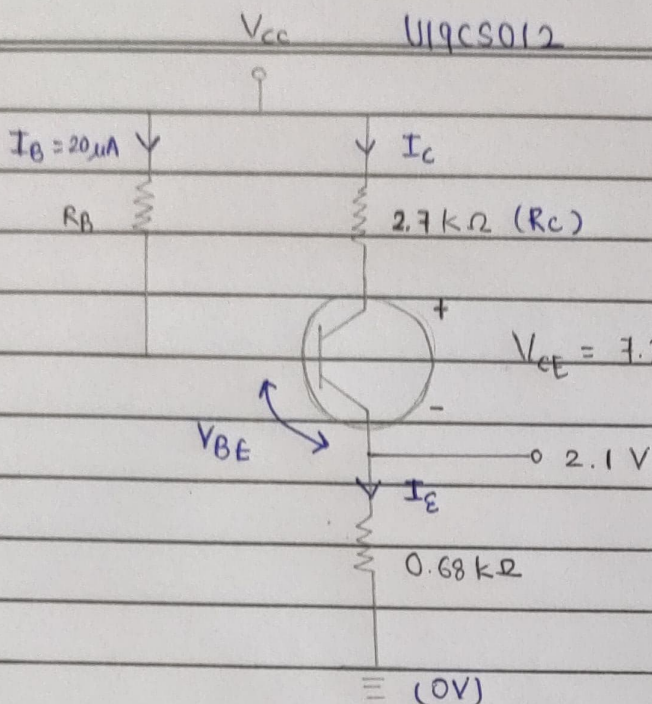 Vcc U19CS012
IB = 20μA IC
RB 2.7 kΩ (RC)
+
VCE = 7.
-
VBE
2.1 V
IE
0.68 kΩ
(0V)